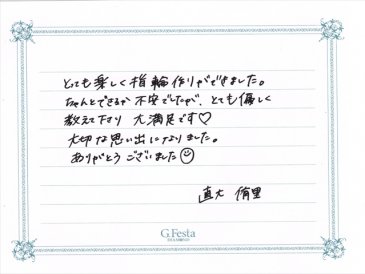 とても楽しく指輪作りができました。
ちゃんとできるか不安でしたが、とても優しく
教えて下さり 大満足です♡
大切な思い出になりました。
ありがとうございました☺
直大 侑里
G.Festa